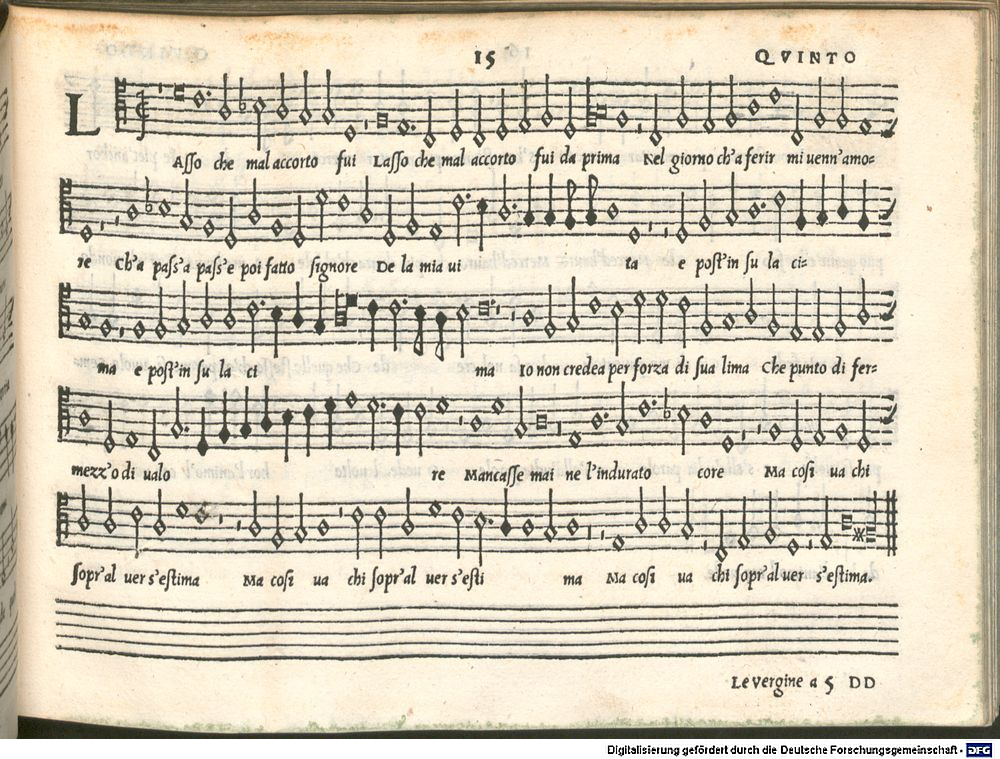 15
QVINTO
LAſſo che mal accorto fui Laſſo che mal accorto fui da prima Nel giorno ch'a ferir mi uenn'amo=
re Ch'a paſſ'a paſſ'e poi fatto ſignore De la mia ui ta e poſt'in ſu la ci=
ma e poſt'in ſu la ci ma Io non credea per forza di ſua lima Che punto di fer=
mezz'o di ualo re Mancaſſe mai ne l'indurato core Ma coſi ua chi
ſopr'al uer s'eſtima Ma coſi ua chi ſopr'al uer s'eſti ma Ma coſi ua chi ſopr'al uer s'eſtima.
Le vergine a 5 DD
Digitalisierung gefördert durch die Deutsche Forschungsgemeinschaft - DFG